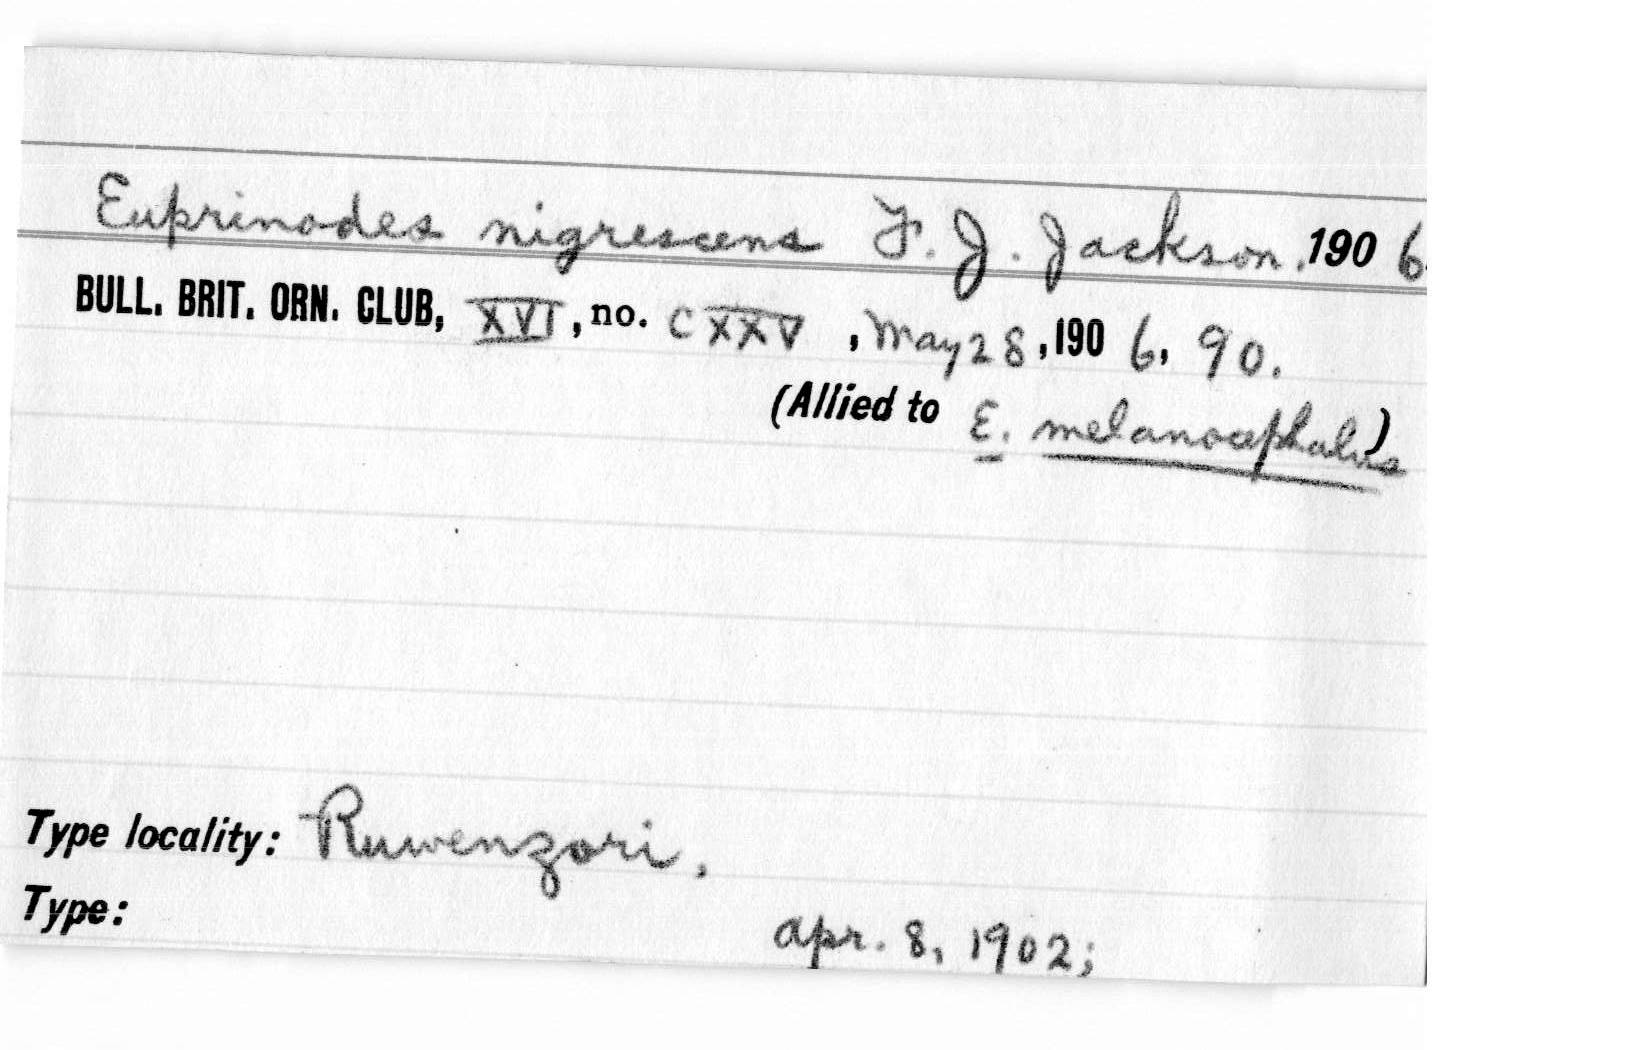 Euprinodes nigrescens F. J. Jackson. 1906.
BULL. BRIT. ORN. CLUB, XVI, no. CXXV, May 28, 1906, 90.
(Allied to E. melanocephalus)
Type locality: Ruwenzori.
Type: Apr. 8, 1902;